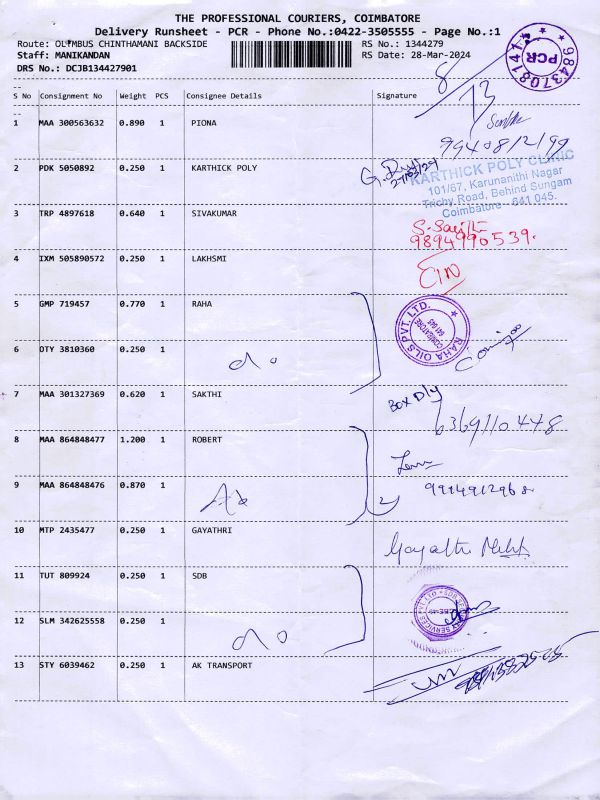 THE PROFESSIONAL COURIERS, COIMBATORE
Delivery Runsheet - PCR - Phone No.:0422-3505555 - Page No.:1
Route: OLYMBUS CHINTHAMANI BACKSIDE
RS No.: 1344279
Staff: MANIKANDAN
RS Date: 28-Mar-2024
DRS No.: DCJB134427901
9843708141
PCR
8/13
S No Consignment No Weight PCS Consignee Details Signature
1 MAA 300563632 0.890 1 PIONA
9940812199
2 PDK 5050892 0.250 1 KARTHICK POLY
KARTHICK POLY CLINIC
101/67, Karunanithi Nagar
Trichy Road, Behind Sungam
Coimbatore - 641 045.
3 TRP 4897618 0.640 1 SIVAKUMAR
9894990539.
4 IXM 505890572 0.250 1 LAKHSMI
5 GMP 719457 0.770 1 RAHA
RAHA OILS PVT. LTD.
COIMBATORE
641 045
6 OTY 3810360 0.250 1
do
7 MAA 301327369 0.620 1 SAKTHI
Box Dly
6369110478
8 MAA 864848477 1.200 1 ROBERT
9 MAA 864848476 0.870 1
2
10 MTP 2435477 0.250 1 GAYATHRI
Gayathri
11 TUT 809924 0.250 1 SDB
12 SLM 342625558 0.250 1
do
13 STY 6039462 0.250 1 AK TRANSPORT